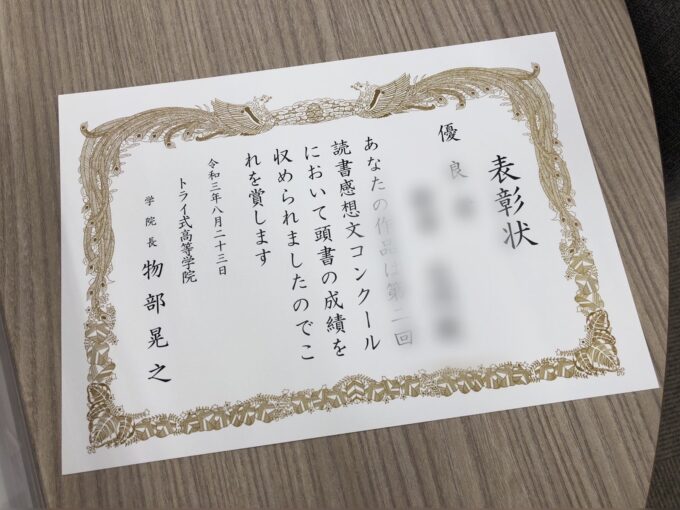 表彰状
優良
あなたの作品は第二回
読書感想文コンクール
において頭書の成績を
収められましたのでこ
れを賞します
令和三年八月二十三日
トライ式高等学院
学院長 物部晃之